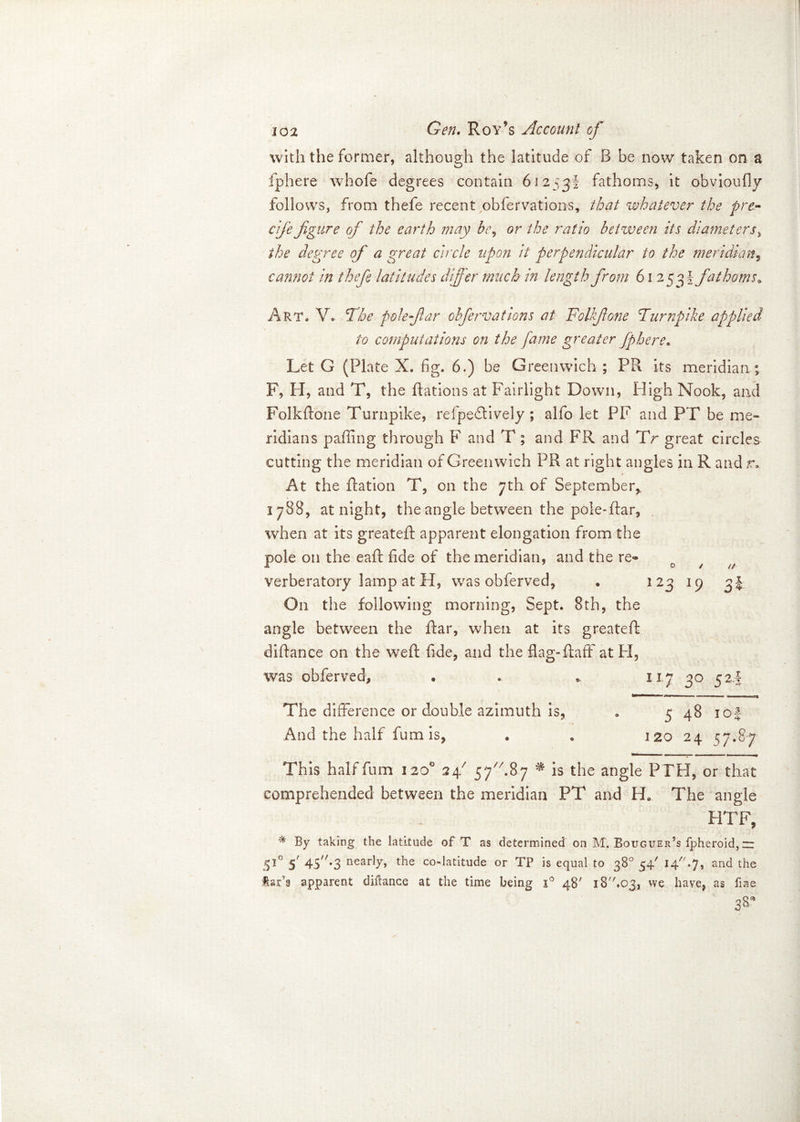 102 Gen. Roy's Account of
with the former, although the latitude of B be now taken on a
ſphere whoſe degrees contain 61253½ fathoms, it obviouſly
follows, from theſe recent obſervations, that whatever the pre-
ciſe figure of the earth may be, or the ratio between its diameters,
the degree of a great circle upon it perpendicular to the meridian,
cannot in theſe latitudes differ much in length from 61253½ fathoms.
Art. V. The pole-ſtar obſervations at Folkſtone Turnpike applied
to computations on the ſame greater ſphere.
Let G (Plate X. fig. 6.) be Greenwich ; PR its meridian ;
F, H, and T, the ſtations at Fairlight Down, High Nook, and
Folkſtone Turnpike, reſpectively ; alſo let PF and PT be me-
ridians paſſing through F and T ; and FR and Tr great circles
cutting the meridian of Greenwich PR at right angles in R and r.
At the ſtation T, on the 7th of September,
1788, at night, the angle between the pole-ſtar,
when at its greateſt apparent elongation from the
pole on the eaſt ſide of the meridian, and the re- ° ′ ″
verberatory lamp at H, was obſerved, . 123 19 3¼
On the following morning, Sept. 8th, the
angle between the ſtar, when at its greateſt
diſtance on the weſt ſide, and the flag-ſtaff at H,
was obſerved, . . . 117 30 52½
The difference or double azimuth is, . 5 48 10¾
And the half ſum is, . . 120 24 57.87
This half ſum 120° 24′ 57″.87 * is the angle PTH, or that
comprehended between the meridian PT and H. The angle
HTF,
* By taking the latitude of T as determined on M. Bouguer's ſpheroid, =
51° 5′ 45″.3 nearly, the co-latitude or TP is equal to 38° 54′ 14″.7, and the
ſtar's apparent diſtance at the time being 1° 48′ 18″.03, we have, as ſine
38°